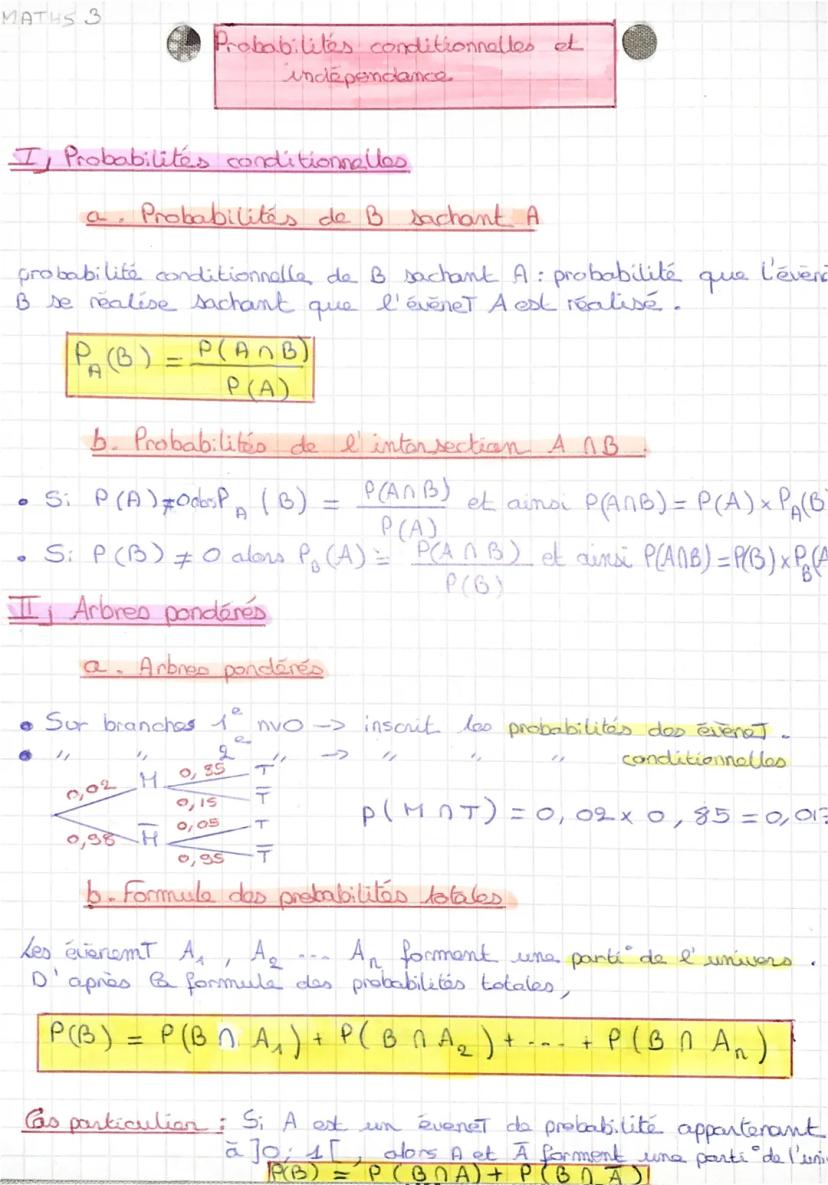 MATHS 3
Probabilités conditionnelles et
indépendance
I, Probabilités conditionnelles
a. Probabilités de B sachant A
probabilité conditionnelle de B sachant A : probabilité que l'évène
B se réalise sachant que l'évèneT A est réalisé.
P_A(B) = P(A ∩ B) / P(A)
b. Probabilités de l'intersection A ∩ B.
• Si P(A) ≠ 0 alors P_A(B) = P(A∩B) / P(A) et ainsi P(A∩B) = P(A) × P_A(B
• Si P(B) ≠ 0 alors P_B(A) = P(A ∩ B) / P(B) et ainsi P(A∩B) = P(B) × P_B(A
II, Arbres pondérés
a. Arbres pondérés
• Sur branches 1e nvo → inscrit les probabilités des évèneT.
• " " 2e " → " " " conditionnelles
0,02 M 0,85 T
0,15 T̅
0,98 M̅ 0,05 T
0,95 T̅
P(M ∩ T) = 0,02 × 0,85 = 0,017
b. Formule des probabilités totales
Les évènemT A₁, A₂ ... Aₙ forment une parti° de l'univers.
D'après la formule des probabilités totales,
P(B) = P(B ∩ A₁) + P(B ∩ A₂) + ... + P(B ∩ Aₙ)
Cas particulier : Si A est un évèneT de probabilité appartenant
à ]0; 1[, alors A et A̅ forment une parti° de l'uni
P(B) = P(B ∩ A) + P(B ∩ A̅)